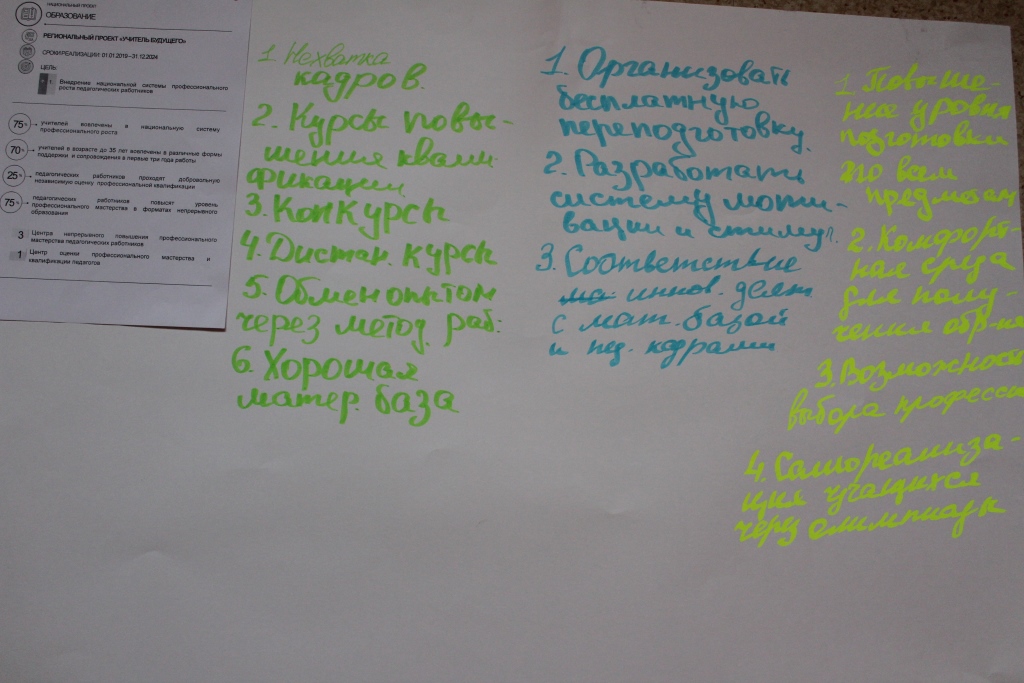 НАЦИОНАЛЬНЫЙ ПРОЕКТ
ОБРАЗОВАНИЕ
РЕГИОНАЛЬНЫЙ ПРОЕКТ «УЧИТЕЛЬ БУДУЩЕГО»
СРОКИ РЕАЛИЗАЦИИ: 01.01.2019 – 31.12.2024
ЦЕЛЬ:
1 Внедрение национальной системы профессионального
роста педагогических работников
75% учителей вовлечены в национальную систему
профессионального роста
70% учителей в возрасте до 35 лет вовлечены в различные формы
поддержки и сопровождения в первые три года работы
25% педагогических работников проходят добровольную
независимую оценку профессиональной квалификации
75% педагогических работников повысят уровень
профессионального мастерства в форматах непрерывного
образования
3 Центра непрерывного повышения профессионального
мастерства педагогических работников
1 Центр оценки профессионального мастерства и
квалификации педагогов
1 Нехватка
кадров.
2. Курсы повы-
шения квали-
фикации
3. Конкурсы
4. Дистан. курсы
5. Обмен опытом
через метод. раб.
6. Хорошая
матер. база
1. Организовать
бесплатную
переподготовку.
2. Разработать
систему моти-
вации и стимул.
3. Соответствие
иннов. деят
с мат. базой
и пед. кадрами
1 Повыше-
ние уровня
подготовки
по всем
предметам
2. Комфорт-
ная среда
для полу-
чения обр-ия
3. Возможность
выбора професси
4. Самореализа-
ция учащихся
через олимпиады